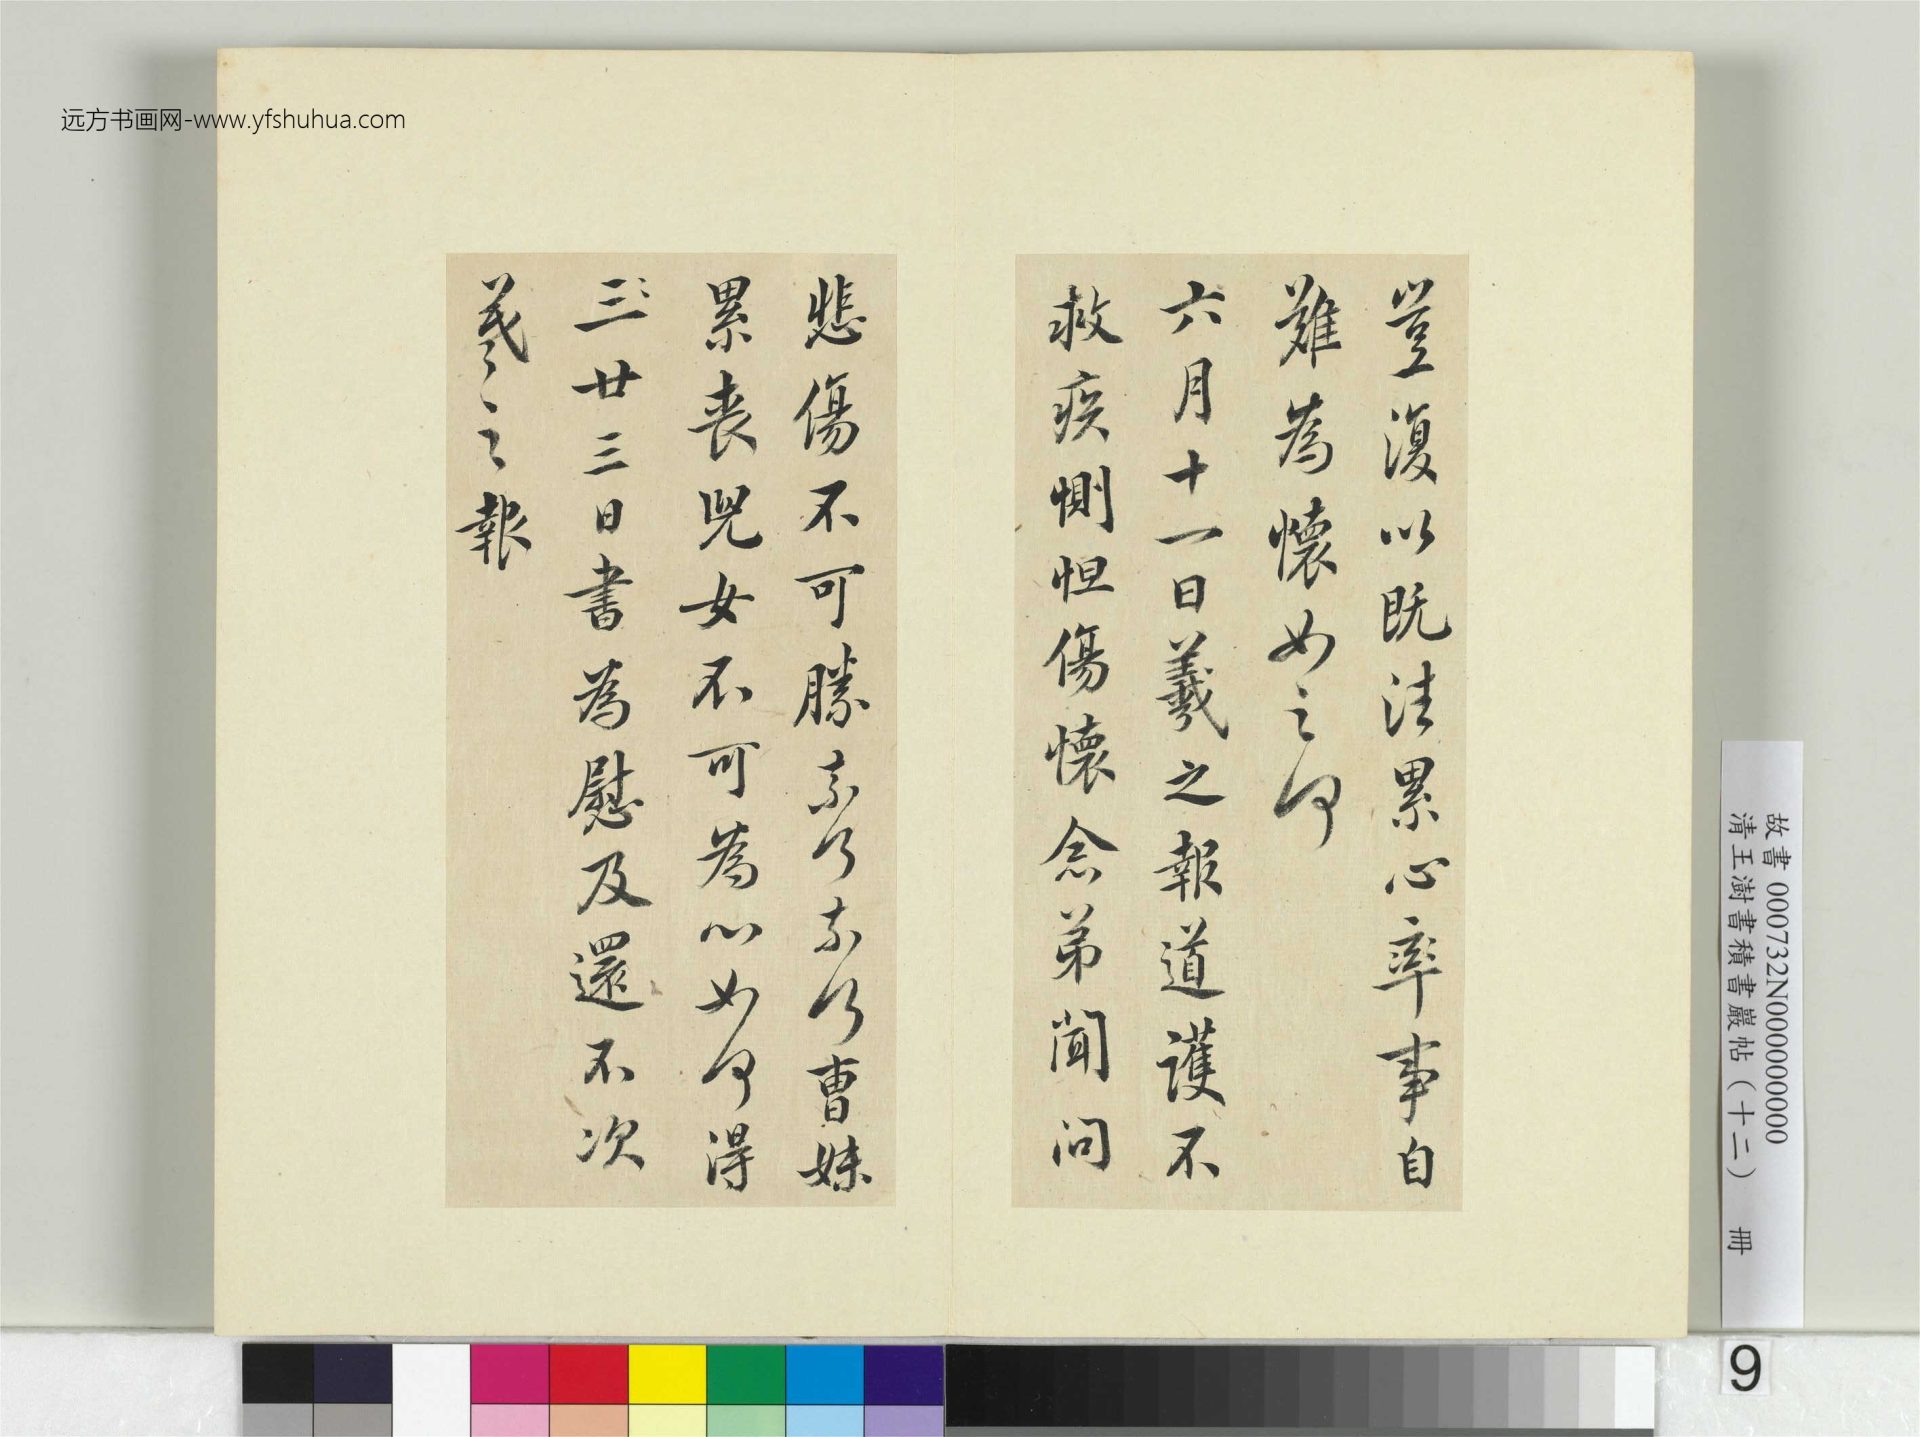 远方书画网-www.yfshuhua.com
豈復以既洼累心率事自
難為懷如之何
六月十一日羲之報道護不
救疾惻怛傷懷念弟聞問
悲傷不可勝奈何奈何曹妹
累喪兒女不可為心如何得
三廿三日書為慰及還不次
羲之報
故書 000732N000000000
清王澍書積書巖帖(十二) 冊
9